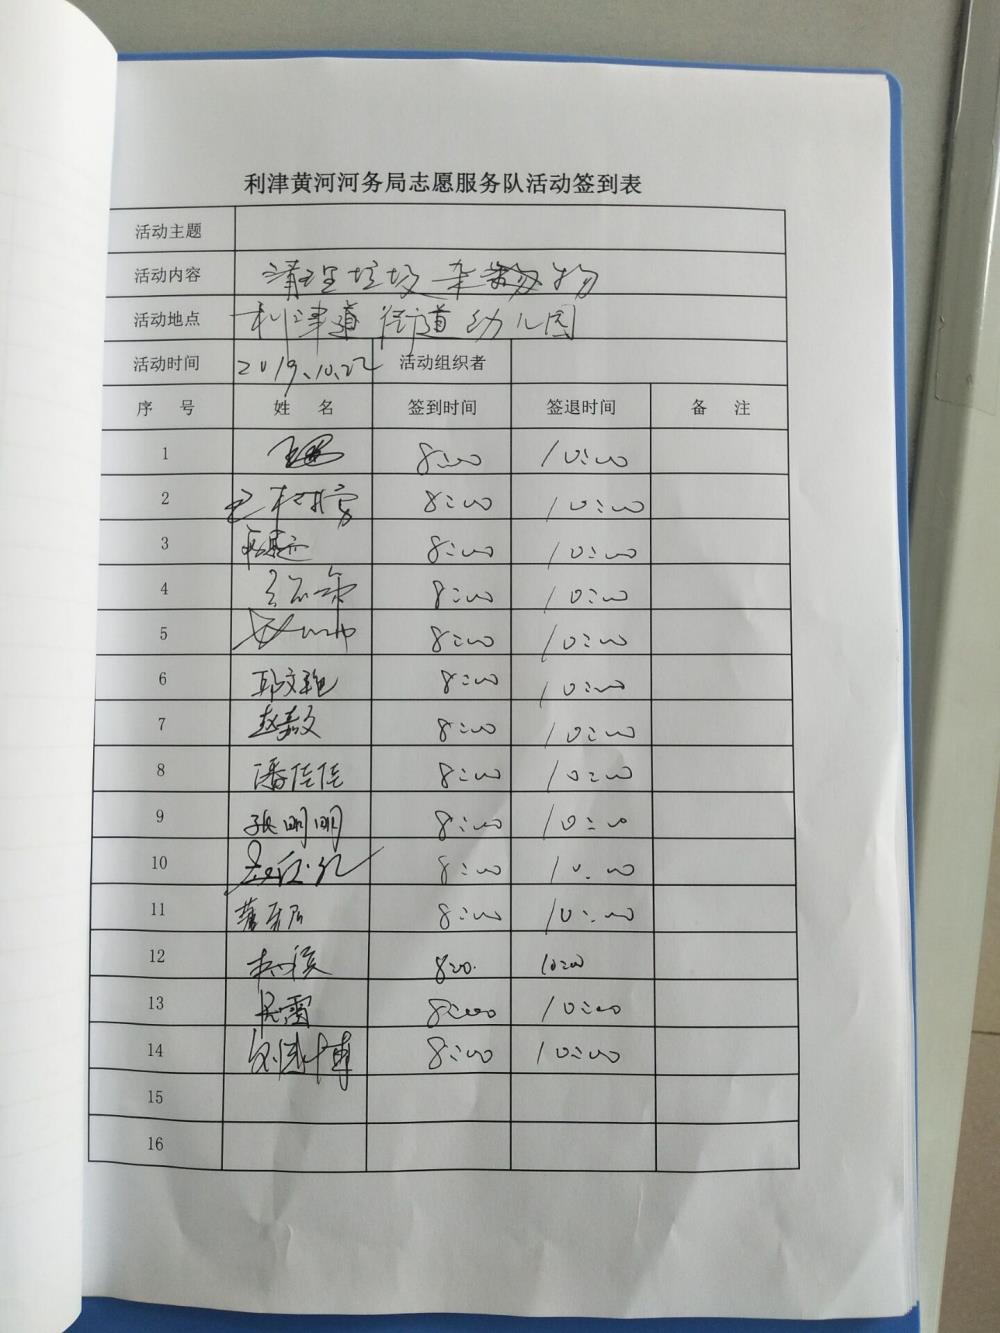 利津黄河河务局志愿服务队活动签到表
活动主题
活动内容 清理垃圾杂物
活动地点 利津道 街道幼儿园
活动时间 2019.10.22 活动组织者
序 号 姓 名 签到时间 签退时间 备 注
1 8:00 10:00
2 8:00 10:00
3 8:00 10:00
4 8:00 10:00
5 8:00 10:00
6 8:00 10:00
7 赵嘉文 8:00 10:00
8 潘佳佳 8:00 10:00
9 张明明 8:00 10:00
10 8:00 10:00
11 8:00 10:00
12 8:00 10:00
13 8:00 10:00
14 8:00 10:00
15
16